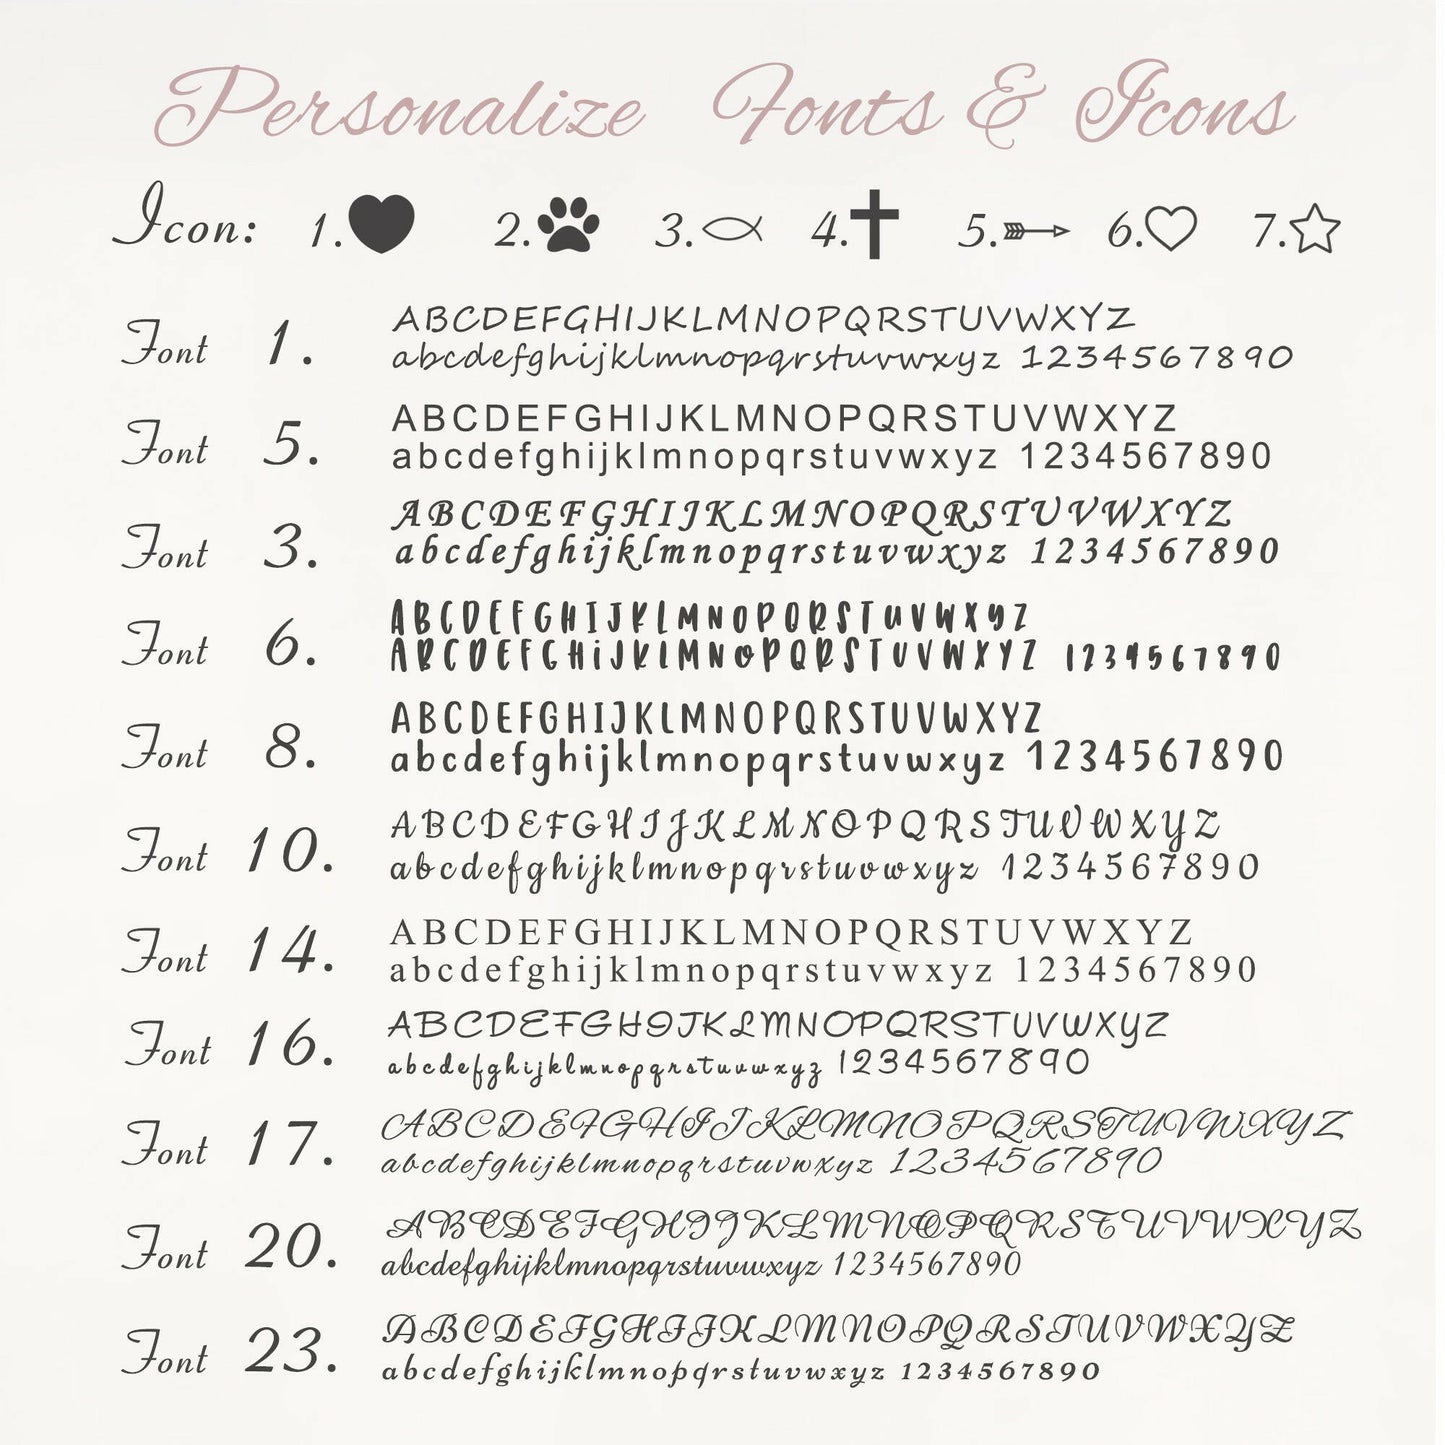 Personalize Fonts & Icons
Icon: 1. 2. 3. 4. 5. 6. 7.
Font 1. ABCDEFGHIJKLMNOPQRSTUVWXYZ
abcdefghijklmnopqrstuvwxyz 1234567890
Font 5. ABCDEFGHIJKLMNOPQRSTUVWXYZ
abcdefghijklmnopqrstuvwxyz 1234567890
Font 3. ABCDEFGHIJKLMNOPQRSTUVWXYZ
abcdefghijklmnopqrstuvwxyz 1234567890
Font 6. ABCDEFGHIJKLMNOPQRSTUVWXYZ
ABCDEFGHiJKLMNOPQRSTUVWXYZ 1234567890
Font 8. ABCDEFGHIJKLMNOPQRSTUVWXYZ
abcdefghijklmnopqrstuvwxyz 1234567890
Font 10. ABCDEFGHIJKLMNOPQRSTUVWXYZ
abcdefghijklmnopqrstuvwxyz 1234567890
Font 14. ABCDEFGHIJKLMNOPQRSTUVWXYZ
abcdefghijklmnopqrstuvwxyz 1234567890
Font 16. ABCDEFGHIJKLMNOPQRSTUVWXYZ
abcdefghijklmnopqrstuvwxyz 1234567890
Font 17. ABCDEFGHIJKLMNOPQRSTUVWXYZ
abcdefghijklmnopqrstuvwxyz 1234567890
Font 20. ABCDEFGHIJKLMNOPQRSTUVWXYZ
abcdefghijklmnopqrstuvwxyz 1234567890
Font 23. ABCDEFGHIJKLMNOPQRSTUVWXYZ
abcdefghijklmnopqrstuvwxyz 1234567890